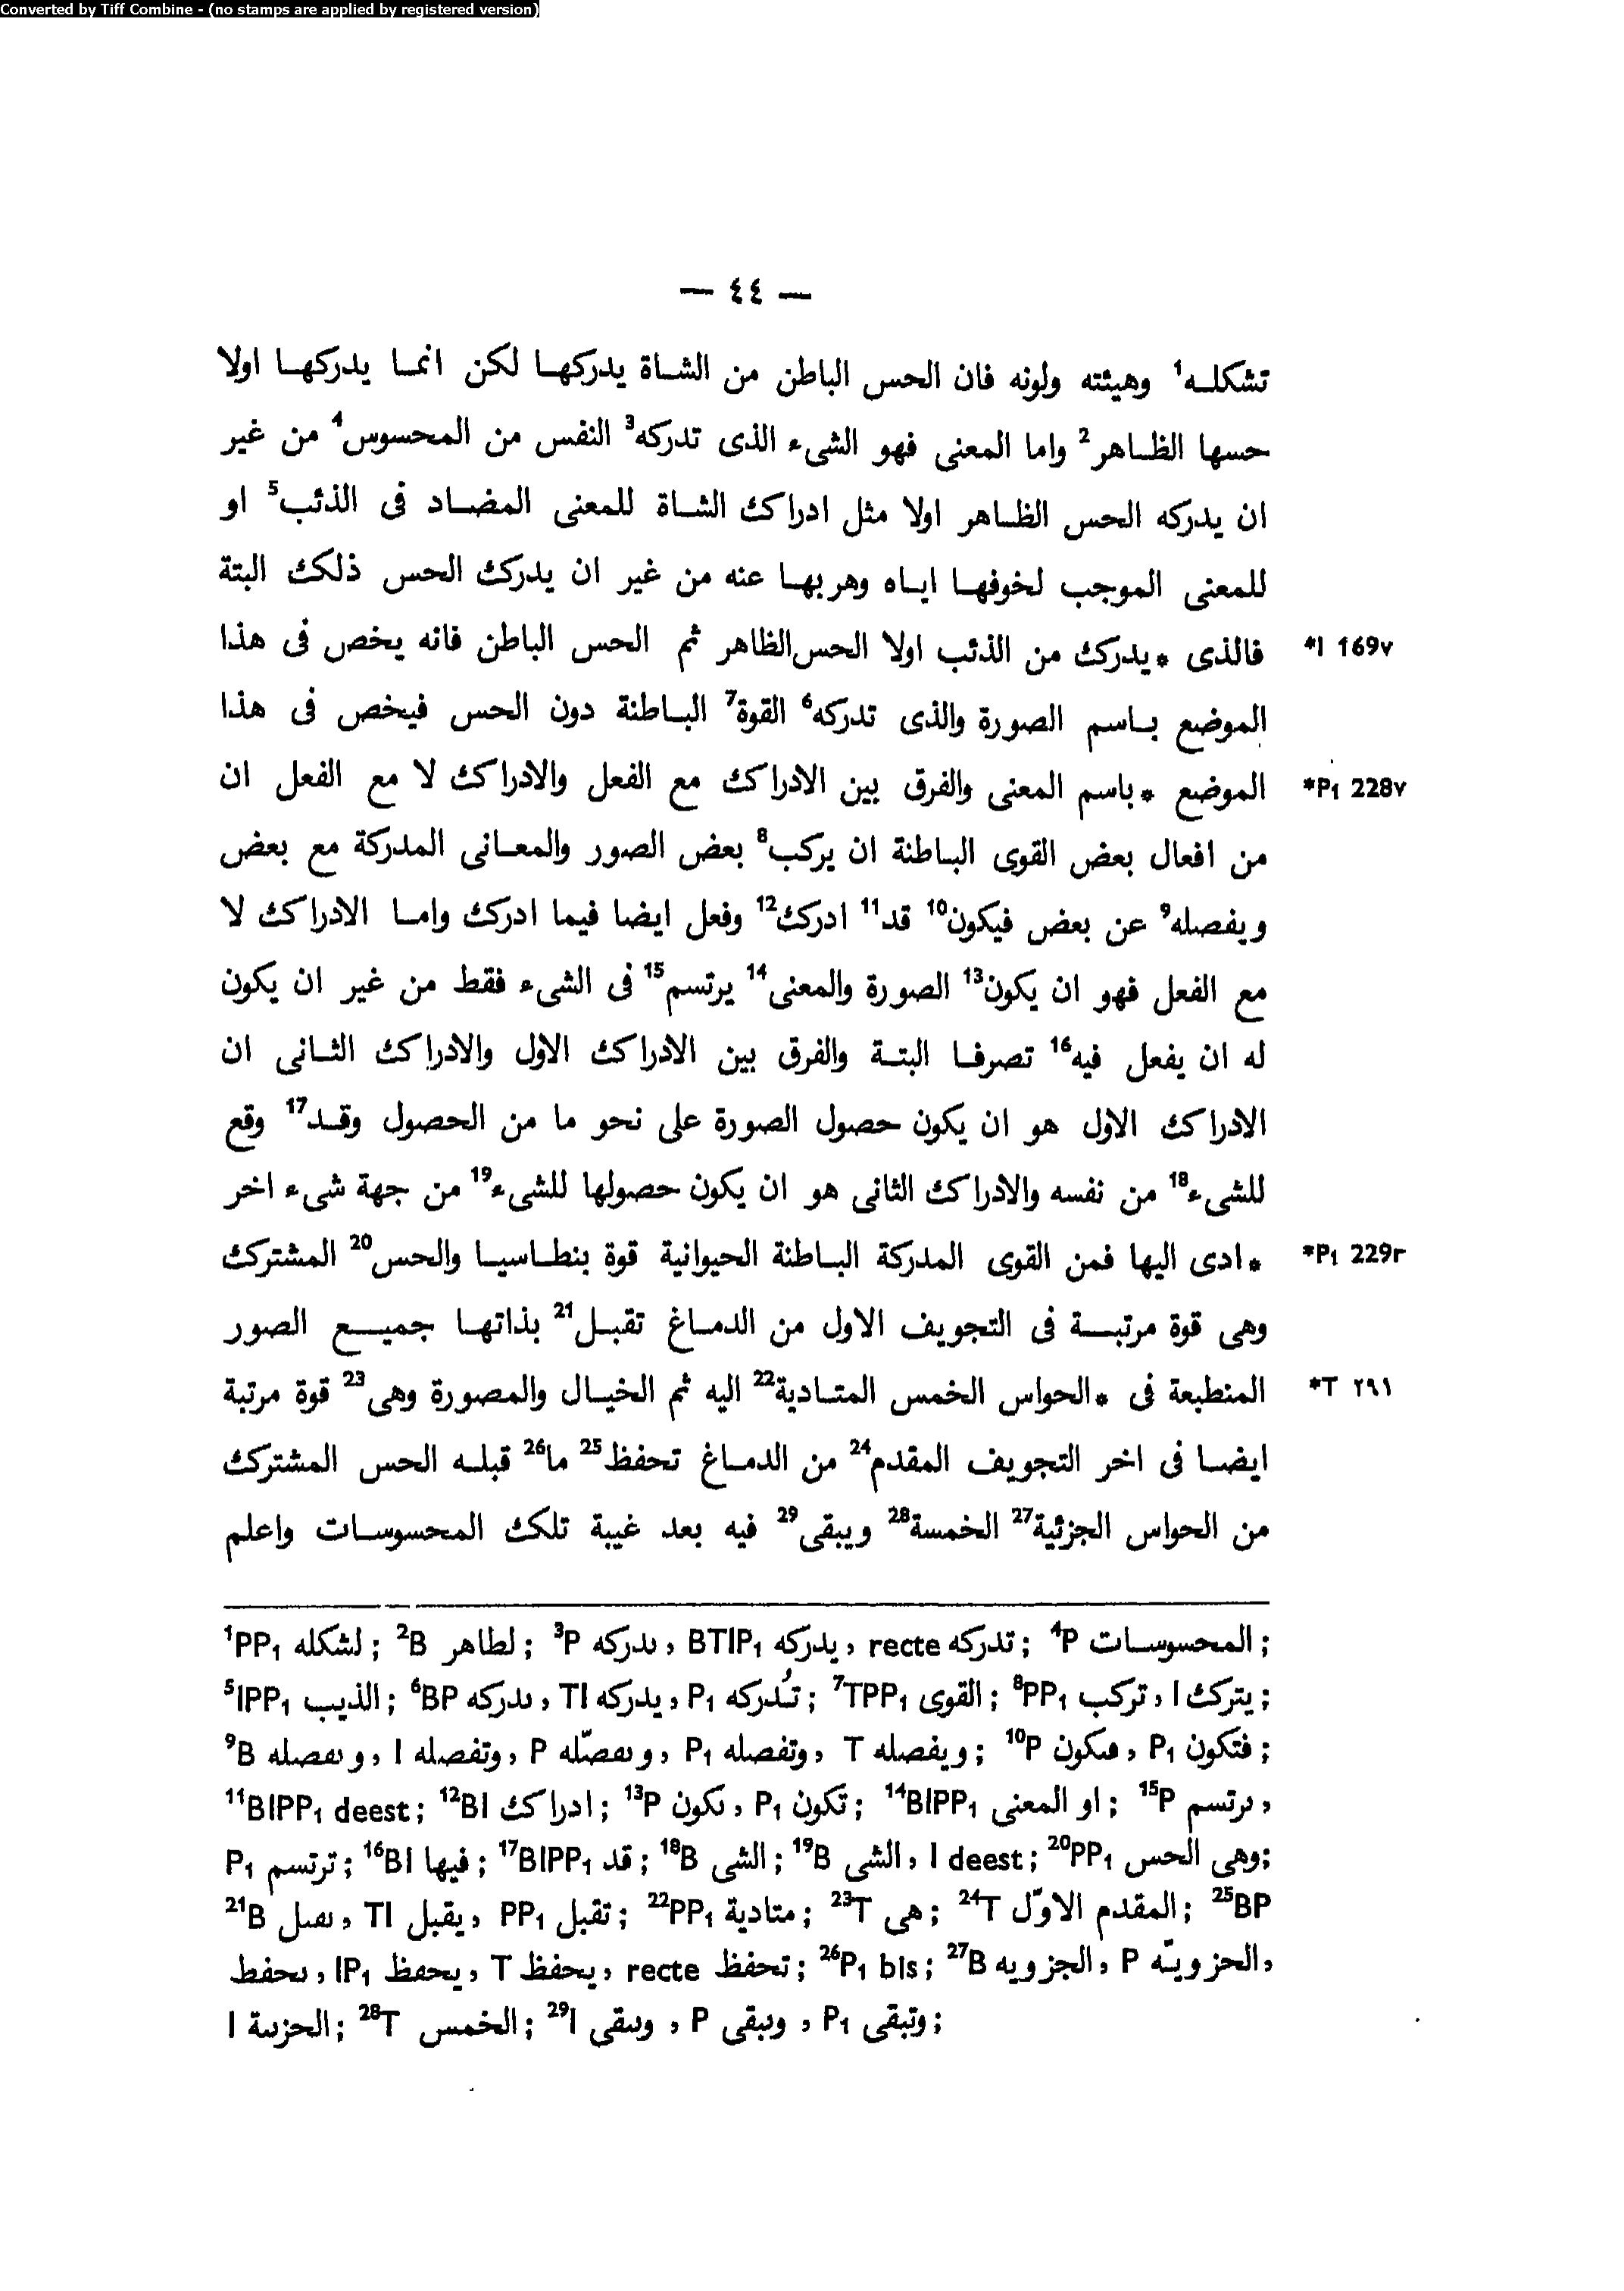 Converted by Tiff Combine - (no stamps are applied by registered version)
— ٤٤ —
تشكله¹ وهيئته ولونه فان الحس الباطن من الشاة يدركها لكن انما يدركها اولا
حسها الظاهر² واما المعنى فهو الشىء الذى تدركه³ النفس من المحسوس⁴ من غير
ان يدركه الحس الظاهر اولا مثل ادراك الشاة للمعنى المضاد فى الذئب⁵ او
للمعنى الموجب لخوفها اياه وهربها عنه من غير ان يدرك الحس ذلك البتة
فالذى *يدرك من الذئب اولا الحس الظاهر ثم الحس الباطن فانه يخص فى هذا *I 169v
الموضع باسم الصورة والذى تدركه⁶ القوة⁷ الباطنة دون الحس فيخص فى هذا
الموضع *باسم المعنى والفرق بين الادراك مع الفعل والادراك لا مع الفعل ان *P₁ 228v
من افعال بعض القوى الباطنة ان يركب⁸ بعض الصور والمعانى المدركة مع بعض
ويفصله⁹ عن بعض فيكون¹⁰ قد¹¹ ادرك¹² وفعل ايضا فيما ادرك واما الادراك لا
مع الفعل فهو ان يكون¹³ الصورة والمعنى¹⁴ يرتسم¹⁵ فى الشىء فقط من غير ان يكون
له ان يفعل فيه¹⁶ تصرفا البتة والفرق بين الادراك الاول والادراك الثانى ان
الادراك الاول هو ان يكون حصول الصورة على نحو ما من الحصول وقد¹⁷ وقع
للشىء¹⁸ من نفسه والادراك الثانى هو ان يكون حصولها للشىء¹⁹ من جهة شىء اخر
*ادى اليها فمن القوى المدركة الباطنة الحيوانية قوة بنطاسيا والحس²⁰ المشترك *P₁ 229r
وهى قوة مرتبة فى التجويف الاول من الدماغ تقبل²¹ بذاتها جميع الصور
المنطبعة فى *الحواس الخمس المتادية²² اليه ثم الخيال والمصورة وهى²³ قوة مرتبة *T ٢٩١
ايضا فى اخر التجويف المقدم²⁴ من الدماغ تحفظ²⁵ ما²⁶ قبله الحس المشترك
من الحواس الجزئية²⁷ الخمسة²⁸ ويبقى²⁹ فيه بعد غيبة تلك المحسوسات واعلم
¹PP₁ لشكله ; ²B لطاهر ; ³P ٮدركه , BTIP₁ يدركه , recte تدركه ; ⁴P المحسوسات ;
⁵IPP₁ الذيب ; ⁶BP ٮدركه , TI يدركه , P₁ تُدركه ; ⁷TPP₁ القوى ; ⁸PP₁ تركب , I يترك ;
⁹B وٮفصله , I وتفصله , P وٮفصّله , P₁ وتفصله , T ويفصله ; ¹⁰P فٮكون , P₁ فتكون ;
¹¹BIPP₁ deest ; ¹²BI ادراك ; ¹³P ٮكون , P₁ تكون ; ¹⁴BIPP₁ او المعنى ; ¹⁵P ٮرتسم ,
P₁ ترتسم ; ¹⁶BI فيها ; ¹⁷BIPP₁ قد ; ¹⁸B الشى ; ¹⁹B الشى , I deest ; ²⁰PP₁ وهى الحس ;
²¹B ٮفٮل , TI يقبل , PP₁ تقبل ; ²²PP₁ متادية ; ²³T هى ; ²⁴T المقدم الاوّل ; ²⁵BP
ٮحفط , IP₁ يحفظ , T يحفظ , recte تحفظ ; ²⁶P₁ bis ; ²⁷B الجزويه , P الحزويّه ,
I الحزٮىة ; ²⁸T الخمس ; ²⁹I وٮٮقى , P وٮبقى , P₁ وتبقى ;